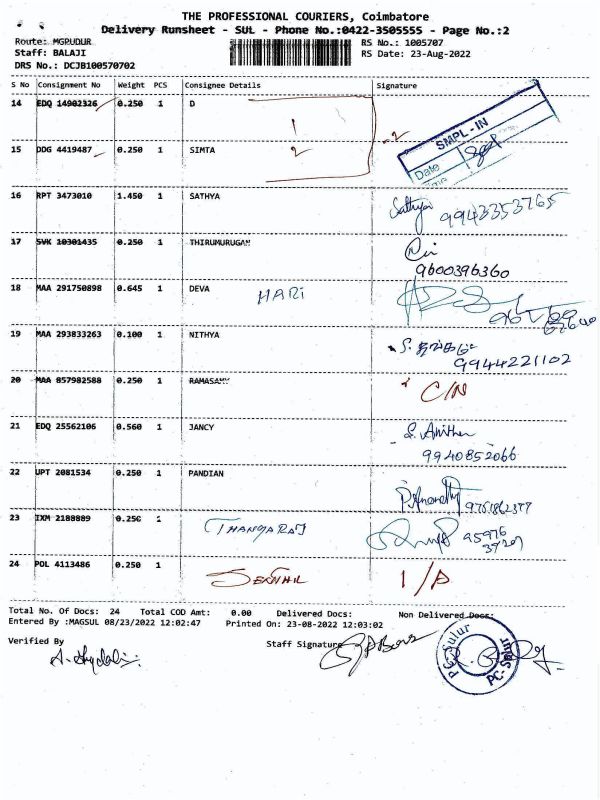 THE PROFESSIONAL COURIERS, Coimbatore
Delivery Runsheet - SUL - Phone No.:0422-3505555 - Page No.:2
Route: MGPUDUR RS No.: 1005707
Staff: BALAJI RS Date: 23-Aug-2022
DRS No.: DCJB100570702
S No Consignment No Weight PCS Consignee Details Signature
14 EDQ 14902326 0.250 1 D 1
SMPL-IN
15 DDG 4419487 0.250 1 SIMTA 2 2
Date
Time
16 RPT 3473010 1.450 1 SATHYA Sathya 9943353765
17 SVK 10301435 0.250 1 THIRUMURUGAN
9600396360
18 MAA 291750898 0.645 1 DEVA HARI
19 MAA 293833263 0.100 1 NITHYA
9944221102
20 MAA 857982588 0.250 1 RAMASAMY C/N
21 EDQ 25562106 0.560 1 JANCY
9940852066
22 UPT 2081534 0.250 1 PANDIAN
23 IXM 2188889 0.250 1 THANGARAJ
24 POL 4113486 0.250 1 SENTHIL I/A
Total No. Of Docs: 24 Total COD Amt: 0.00 Delivered Docs: Non Delivered Docs:
Entered By :MAGSUL 08/23/2022 12:02:47 Printed On: 23-08-2022 12:03:02
Verified By Staff Signature
PC-Sulur
PC-Sulur